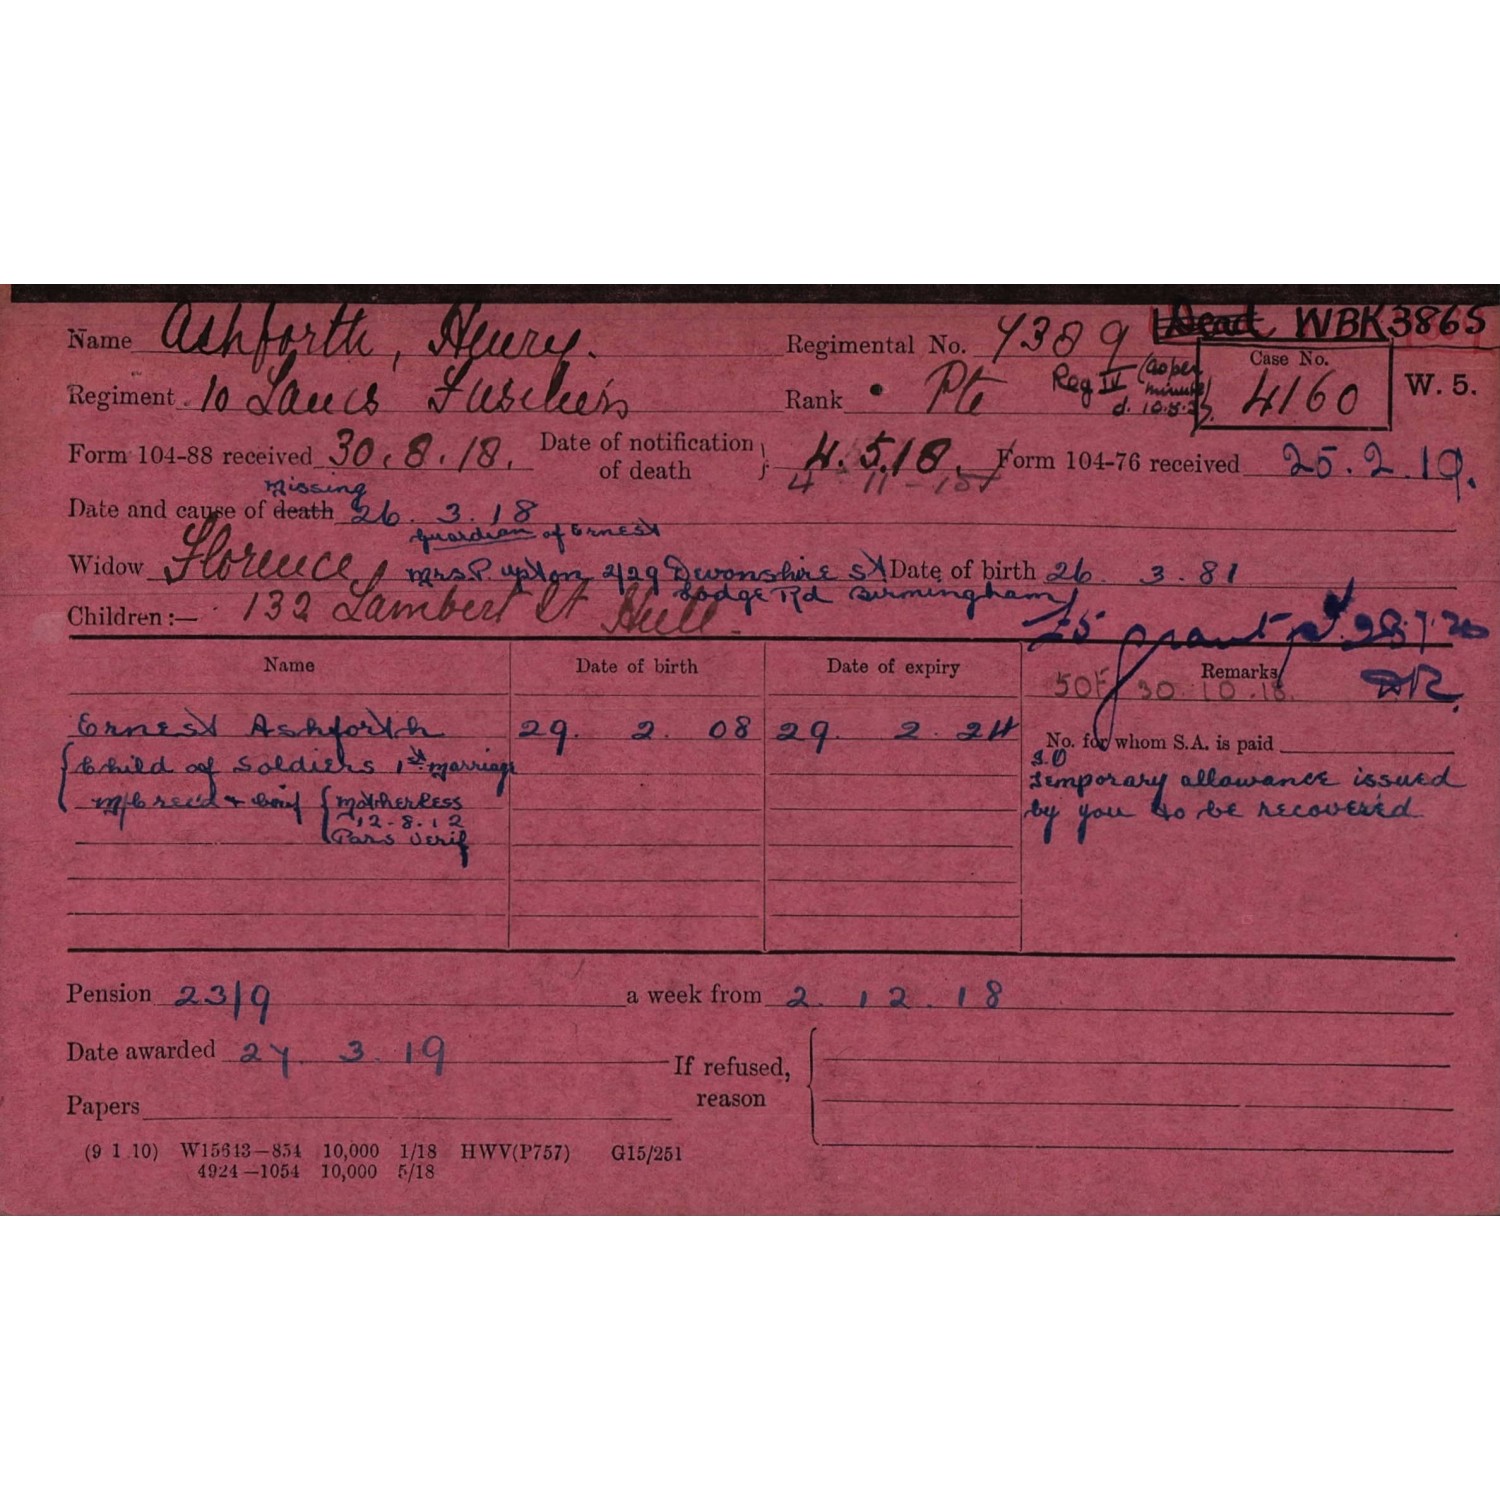 Dead WBK3865
Name Ashforth, Henry. Regimental No. 7389 Case No.
Regiment 10 Lancs Fusiliers Rank Pte Reg IV (as per minute W. 5.
d. 10.5.2 4160
Form 104-88 received 30.8.18. Date of notification of death } 4.5.18. Form 104-76 received 25.2.19.
4 - 11 - 18
Missing
Date and cause of death 26. 3. 18
guardian of Ernest
Widow Florence, Mrs P. Upton 2/29 Devonshire St Date of birth 26. 3. 81
Lodge Rd Birmingham
Children :— 132 Lambert St Hull
£5 grant pd. 28.7.20
Name Date of birth Date of expiry Remarks
50F 30.10.18.
Ernest Ashforth 29. 2. 08 29. 2. 24
No. for whom S.A. is paid
{ Child of Soldiers 1st marriage
S.O
Temporary allowance issued
m/c recd + { Motherless
by you to be recovered
12-8-12
Pars Verif
Pension 23/9 a week from 2. 12. 18
Date awarded 27. 3. 19 If refused, reason
Papers
(9 1 10) W15643—854 10,000 1/18 HWV(P757) G15/251
4924—1054 10,000 5/18